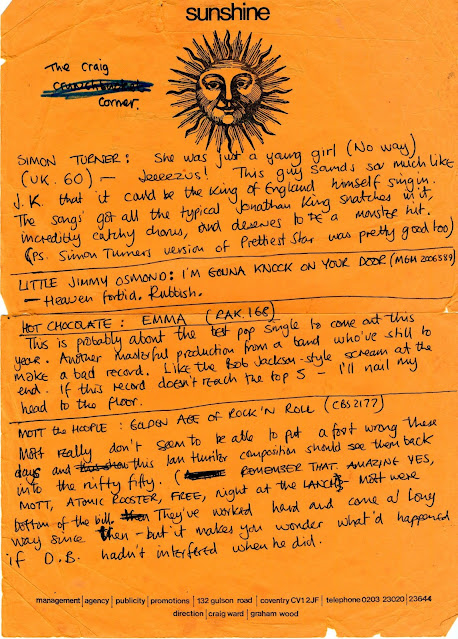 sunshine
The Craig
corner.
SIMON TURNER: She was just a young girl (No way)
(UK. 60) — Jeeezius! This guy sounds so much like
J.K. that it could be the King of England himself singin.
The songs' got all the typical Jonathan King snatches in it,
incredibly catchy chorus, and deserves to be a monster hit.
(PS. Simon Turners version of Prettiest Star was pretty good too)
LITTLE JIMMY OSMOND: I'M GONNA KNOCK ON YOUR DOOR (MGM 2006389)
— Heaven forbid. Rubbish.
HOT CHOCOLATE: EMMA (RAK. 168)
This is probably about the best pop single to come out this
year. Another masterful production from a band who've still to
make a bad record. Like the Bob Jackson-style scream at the
end. If this record doesn't reach the top 5 — I'll nail my
head to the floor.
MOTT the HOOPLE: GOLDEN AGE OF ROCK'N ROLL (CBS 2177)
Mott really don't seem to be able to put a foot wrong these
days and this Ian Hunter composition should see them back
into the nifty fifty. (REMEMBER THAT AMAZING YES,
MOTT, ATOMIC ROOSTER, FREE, night at the LANCH? Mott were
bottom of the bill. They've worked hard and come a long
way since then - but it makes you wonder what'd happened
if D.B. hadn't interfered when he did.
management | agency | publicity | promotions | 132 gulson road | coventry CV1 2JF | telephone 0203 23020 | 23644
direction | craig ward | graham wood